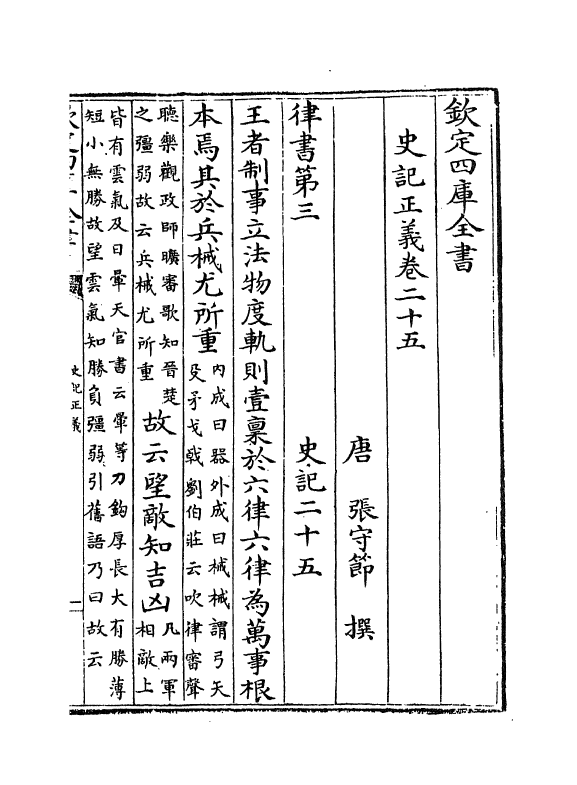 欽定四庫全書
史記正義卷二十五
唐 張守節 撰
律書第三 史記二十五
王者制事立法物度軌則壹稟於六律六律為萬事根
本焉其於兵械尤所重
內成曰器外成曰械械謂弓矢
殳矛戈戟劉伯莊云吹律審聲
聽樂觀政師曠審歌知晉楚
之彊弱故云兵械尤所重
故云望敵知吉凶
凡兩軍
相敵上
皆有雲氣及日暈天官書云暈等力鈞厚長大有勝薄
短小無勝故望雲氣知勝負彊弱引舊語乃曰故云
史記正義
一